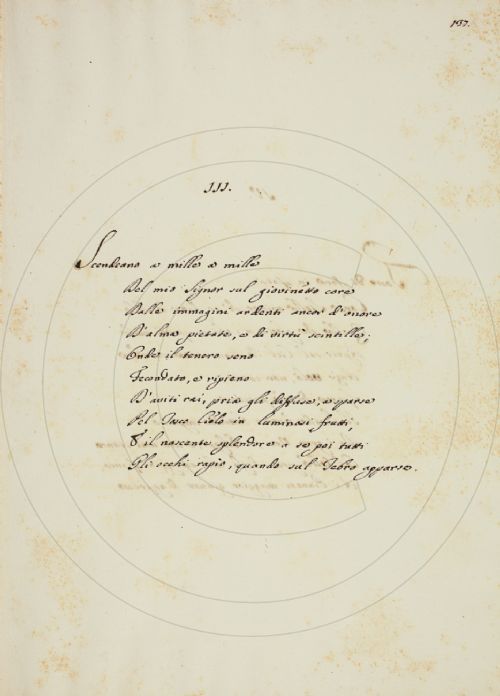 137.
III.
Scendeano a mille a mille
Del mio Signor sul giovinetto core
Dalle immagini ardenti ancor d'onore
D'alma pietate, e di virtù scintille;
Onde il tenero seno
Fecondato, e ripieno
D'aviti rai, pria gli diffuse, e sparse
Pel Tosco Cielo in luminosi frutti,
E il nascente splendore a se poi tutti
Gli occhi rapio, quando sul Tebro apparse.